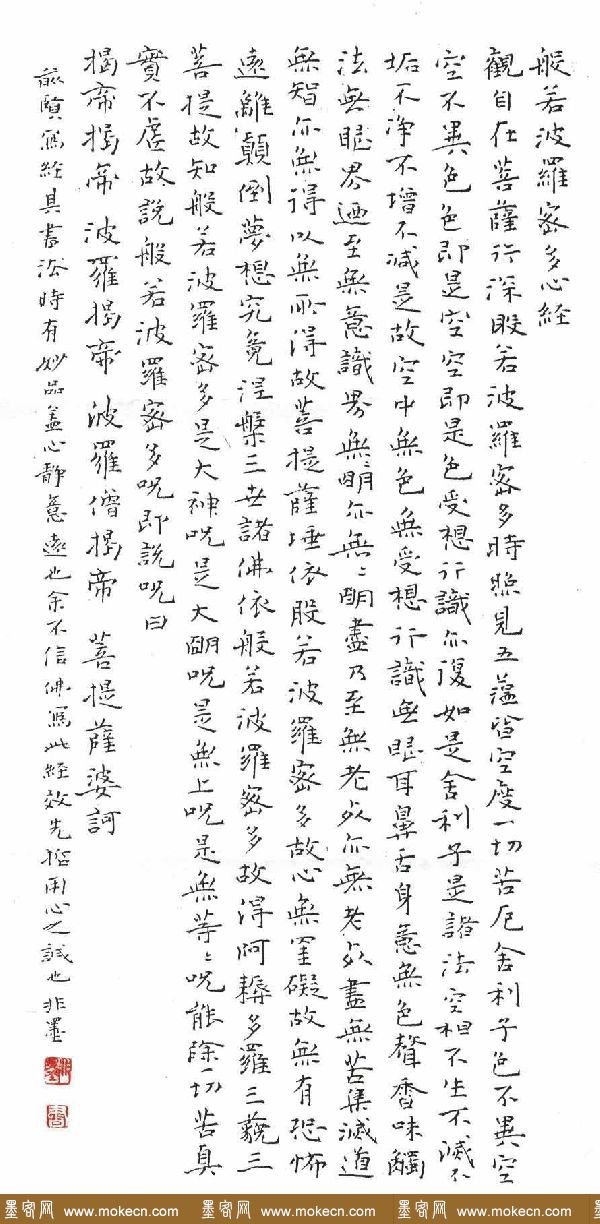 般若波羅密多心経
觀自在菩薩行深般若波羅密多時照見五蘊皆空度一切苦厄舍利子色不異空
空不異色色即是空空即是色受想行識亦復如是舍利子是諸法空相不生不滅不
垢不净不增不減是故空中無色無受想行識無眼耳鼻舌身意無色聲香味觸
法無眼界迺至無意識界無明亦無無明盡乃至無老死亦無老死盡無苦集滅道
無智亦無得以無所得故菩提薩埵依般若波羅密多故心無罣礙故無有恐怖
遠離顛倒夢想究竟涅槃三世諸佛依般若波羅密多故得阿耨多羅三藐三
菩提故知般若波羅密多是大神呪是大明呪是無上呪是無等〻呪能除一切苦真
實不虛故說般若波羅密多呪即說呪曰
揭帝揭帝 波羅揭帝 波羅僧揭帝 菩提薩婆訶
寫経具書法時有妙品蓋心靜意遠也余不信佛寫此経效先賢用心之誠也非墨
墨客网 www.mokecn.com 墨客网 www.mokecn.com 墨客网 www.mokecn.com